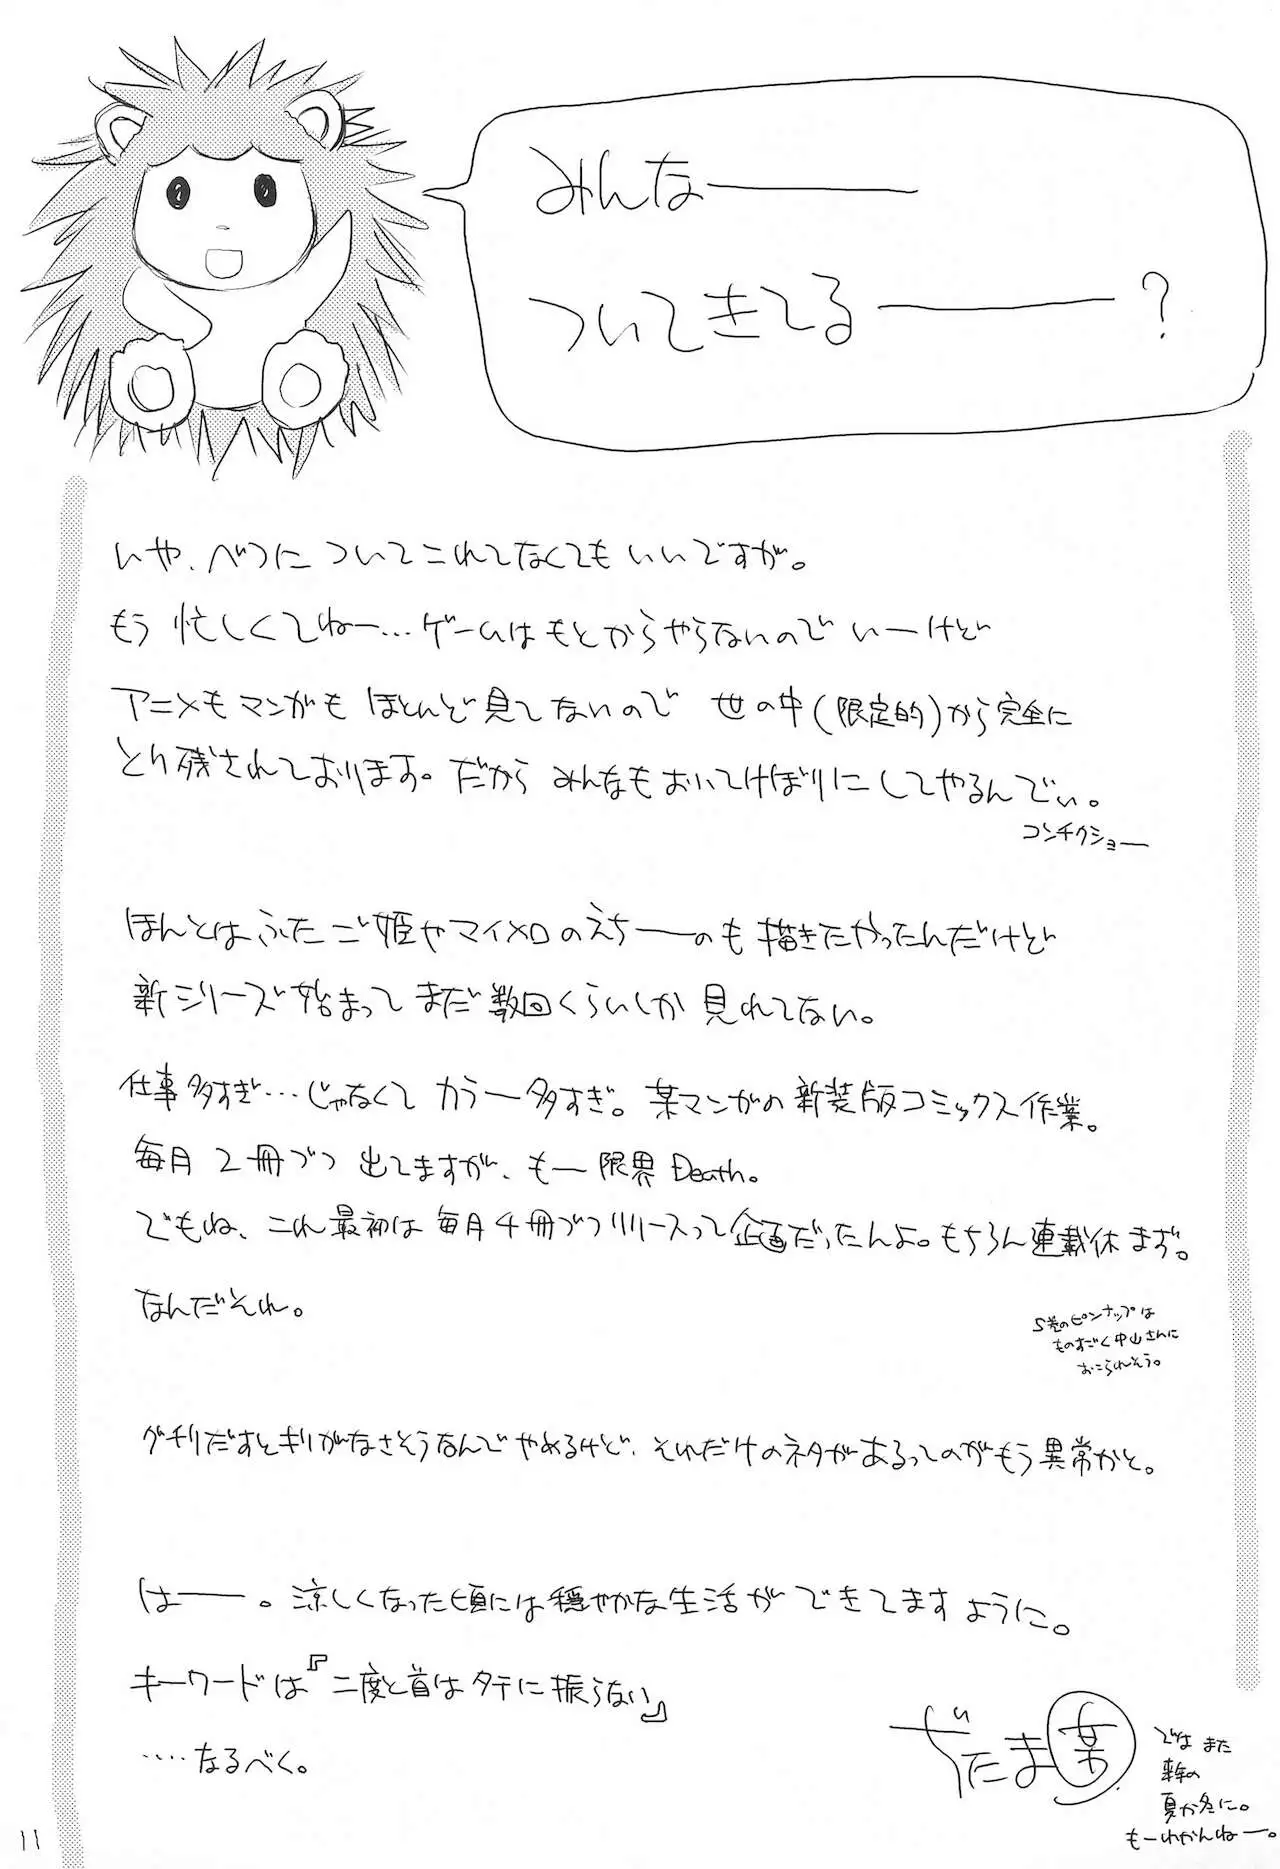 みんなーーー
ついてきてるーーー？
いや、べつに ついてこれてなくても いいですが。
もう 忙しくてねー…ゲームはもとからやらないので いーけど
アニメもマンガも ほとんど見てないので 世の中(限定的)から完全に
とり残されております。だから みんなもおいてけぼりにしてやるんでぃ。
コンチクショー
ほんとは ふたご姫やマイメロのえちーーのも 描きたかったんだけど
新シリーズ始まって まだ数回くらいしか 見れてない。
仕事多すぎ…じゃなくて カラー多すぎ。某マンガの新装版コミックス作業。
毎月 2冊づつ 出てますが、もー限界Death。
でもね、これ最初は毎月4冊づつリリースって企画だったんよ。もちろん連載休まず。
なんだそれ。
5巻のピンナップは
ものすごく中山さんに
おこられそう。
グチりだすとキリがなさそうなんでやめるけど、それだけのネタがあるってのがもう異常かと。
はーー。涼しくなった頃には穏やかな生活ができてますように。
キーワードは『二度と首はタテに振らない』
……なるべく。
ぢたま某
ではまた
来年の
夏か冬に。
もーわかんねー。
11